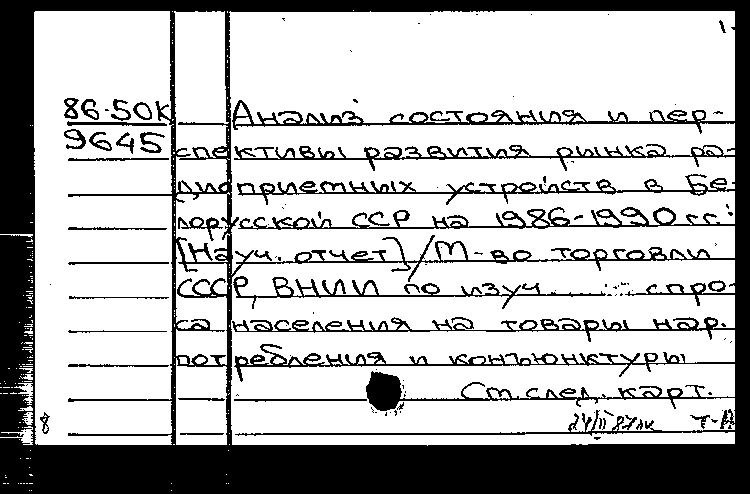 1-
86-50К Анализ состояния и пер-
9645 спективы развития рынка ра-
диоприемных устройств в Бе-
лорусской ССР на 1986-1990 гг.:
[Науч. отчет] / М-во торговли
СССР, ВНИИ по изуч. спро-
са населения на товары нар.
потребления и конъюнктуры
Ст. след. карт.
8 24/II 87 Т-А